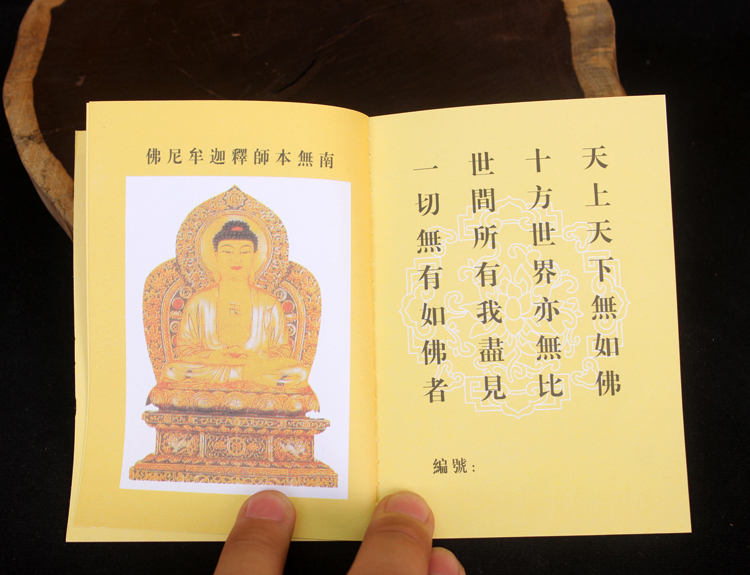 南無本師釋迦牟尼佛
天上天下無如佛
十方世界亦無比
世間所有我盡見
一切無有如佛者
編號: